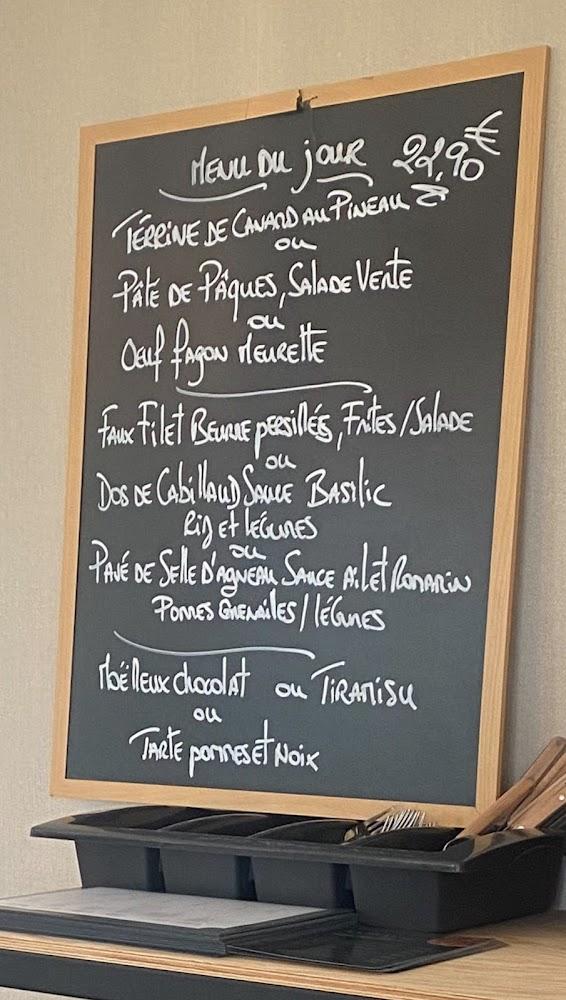 MENU DU jOUR 22,90€
TERRINE DE CANARD AU PINEAU
OU
PÂTÉ DE PÂQUES, SALADE VERTE
OU
OEuf façon MEURETTE
FAUX FILET BEURRE PERSILLÉS, FRITES/SALADE
OU
DOS DE CABILLAUD SAUCE BASILIC
RIZ ET LÉGUMES
OU
PAVÉ DE SELLE D'AGNEAU SAUCE AIL ET ROMARIN
POMMES GRENAILES/LÉGUMES
MOËLLEUX chocolat OU TIRAMISU
OU
TARTE POMMES ET NOIX